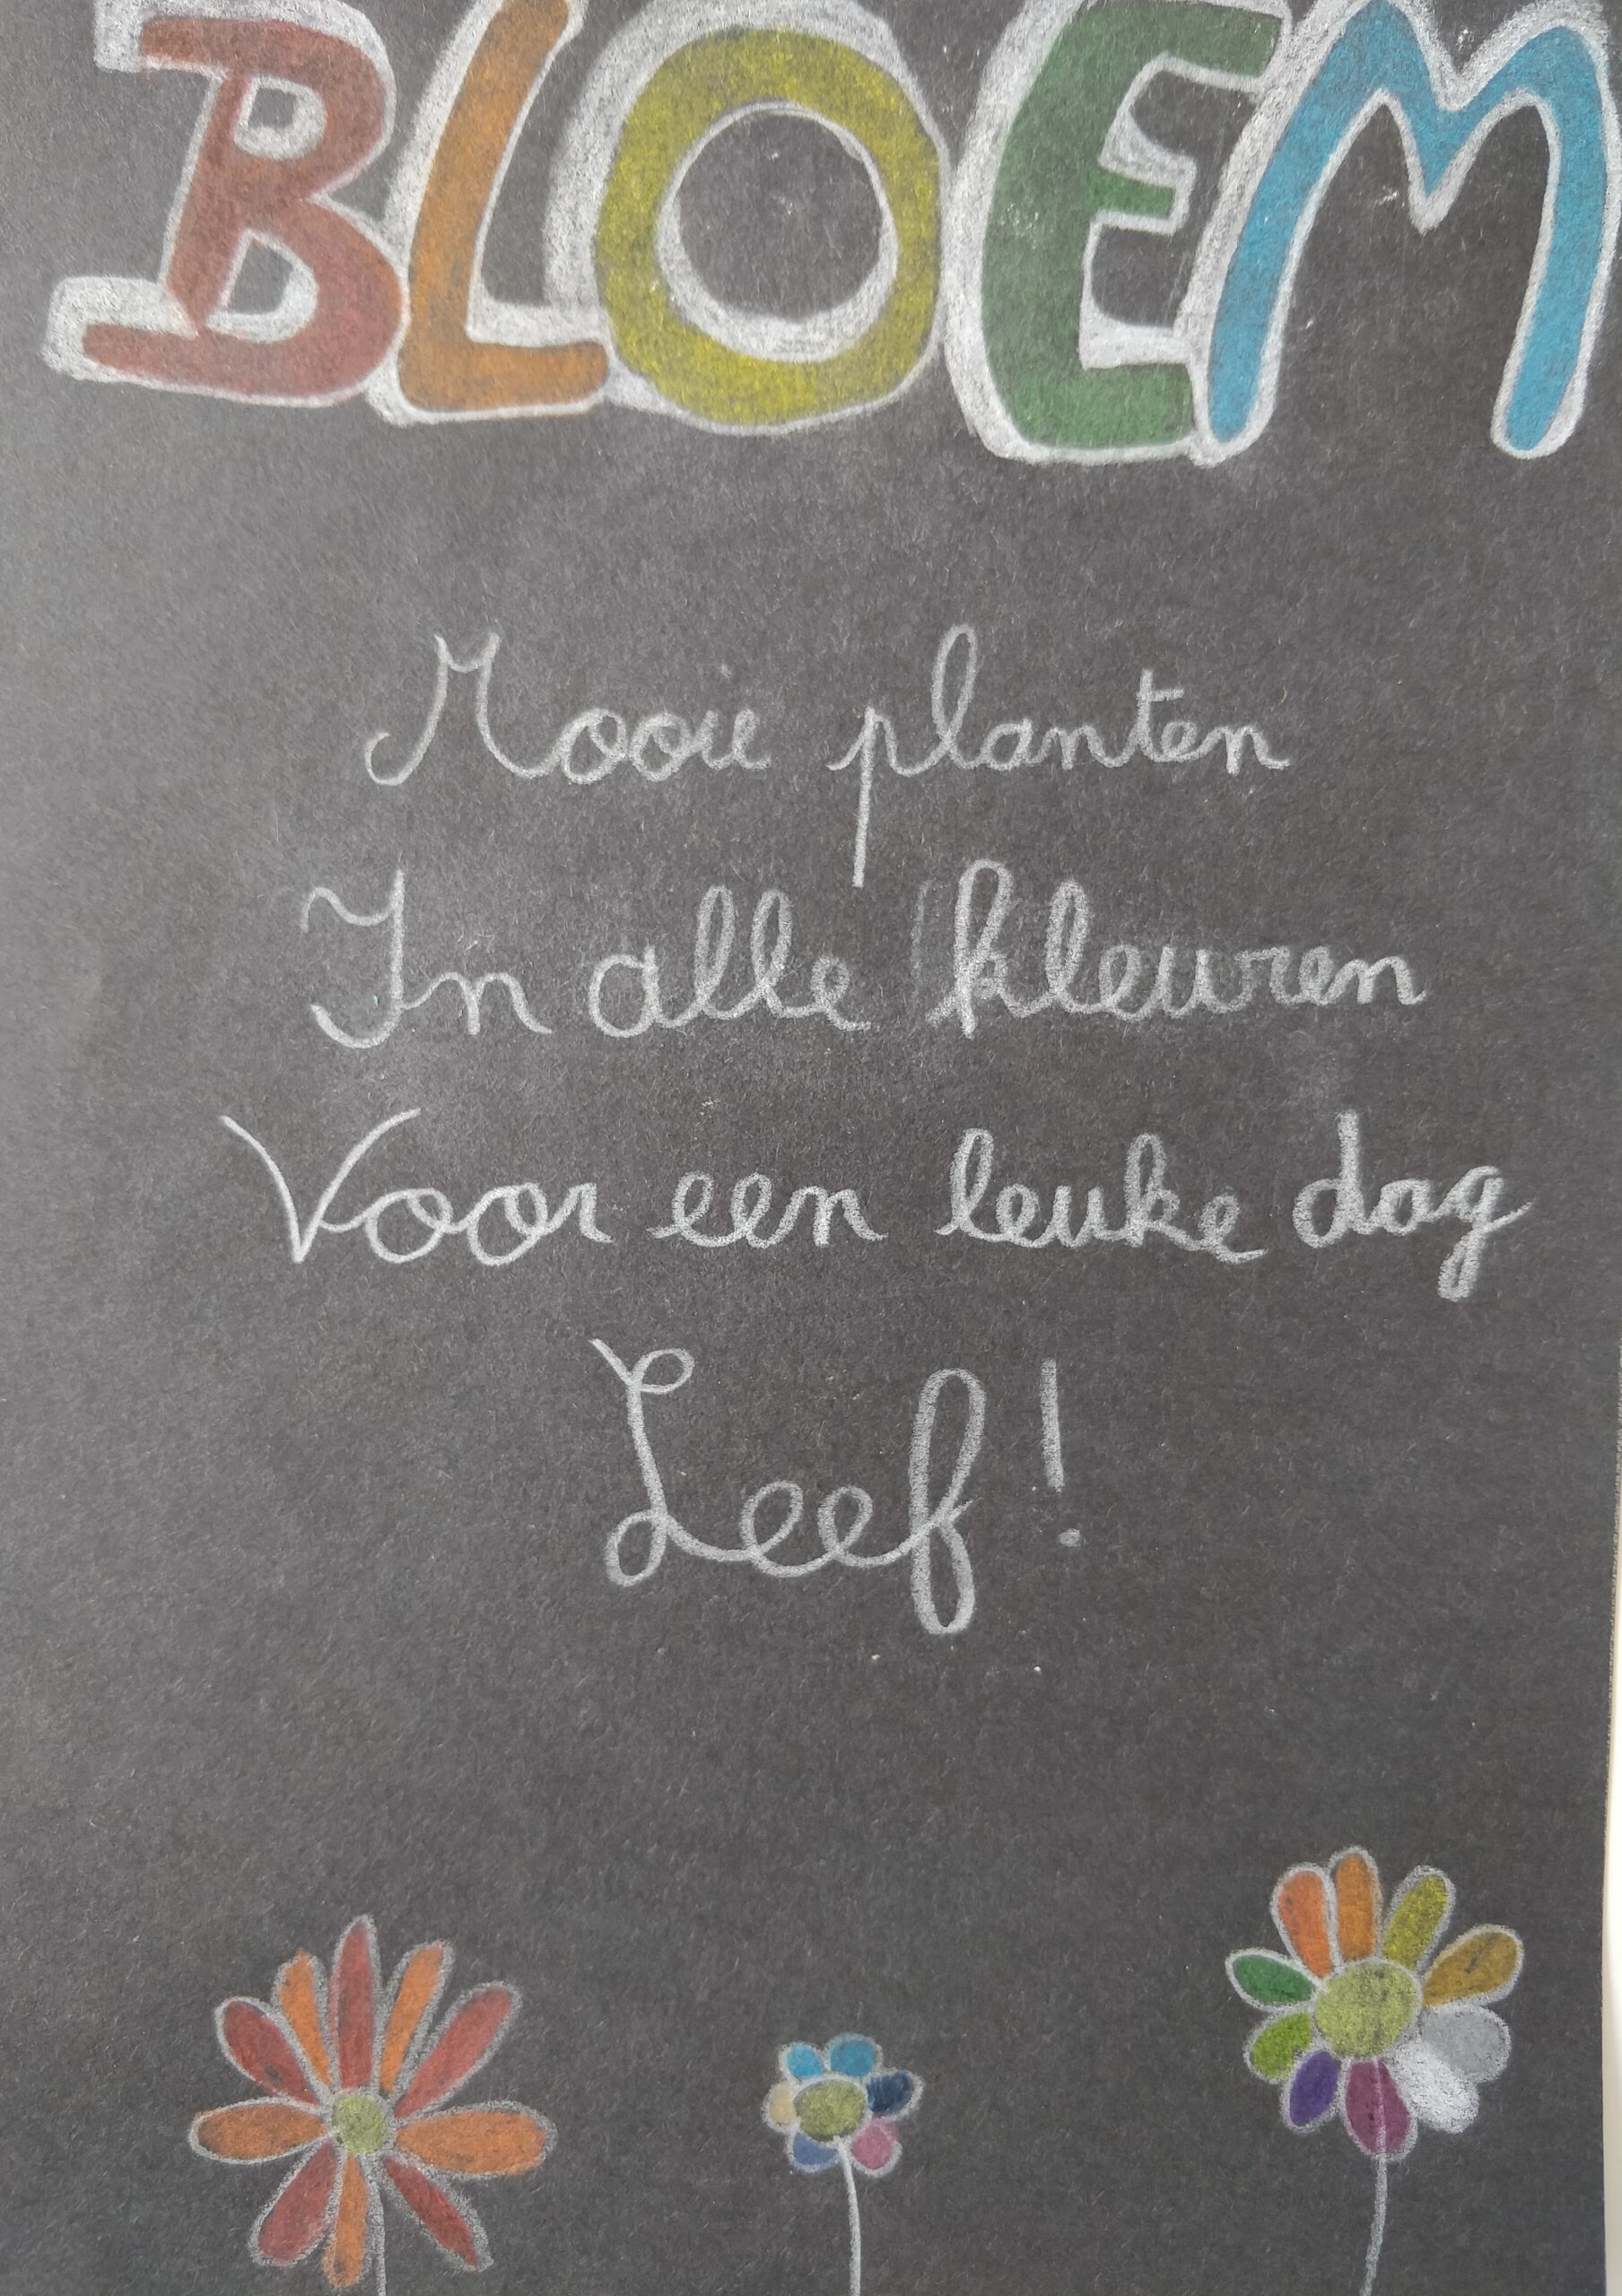 BLOEM
Mooie planten
In alle kleuren
Voor een leuke dag
Leef!